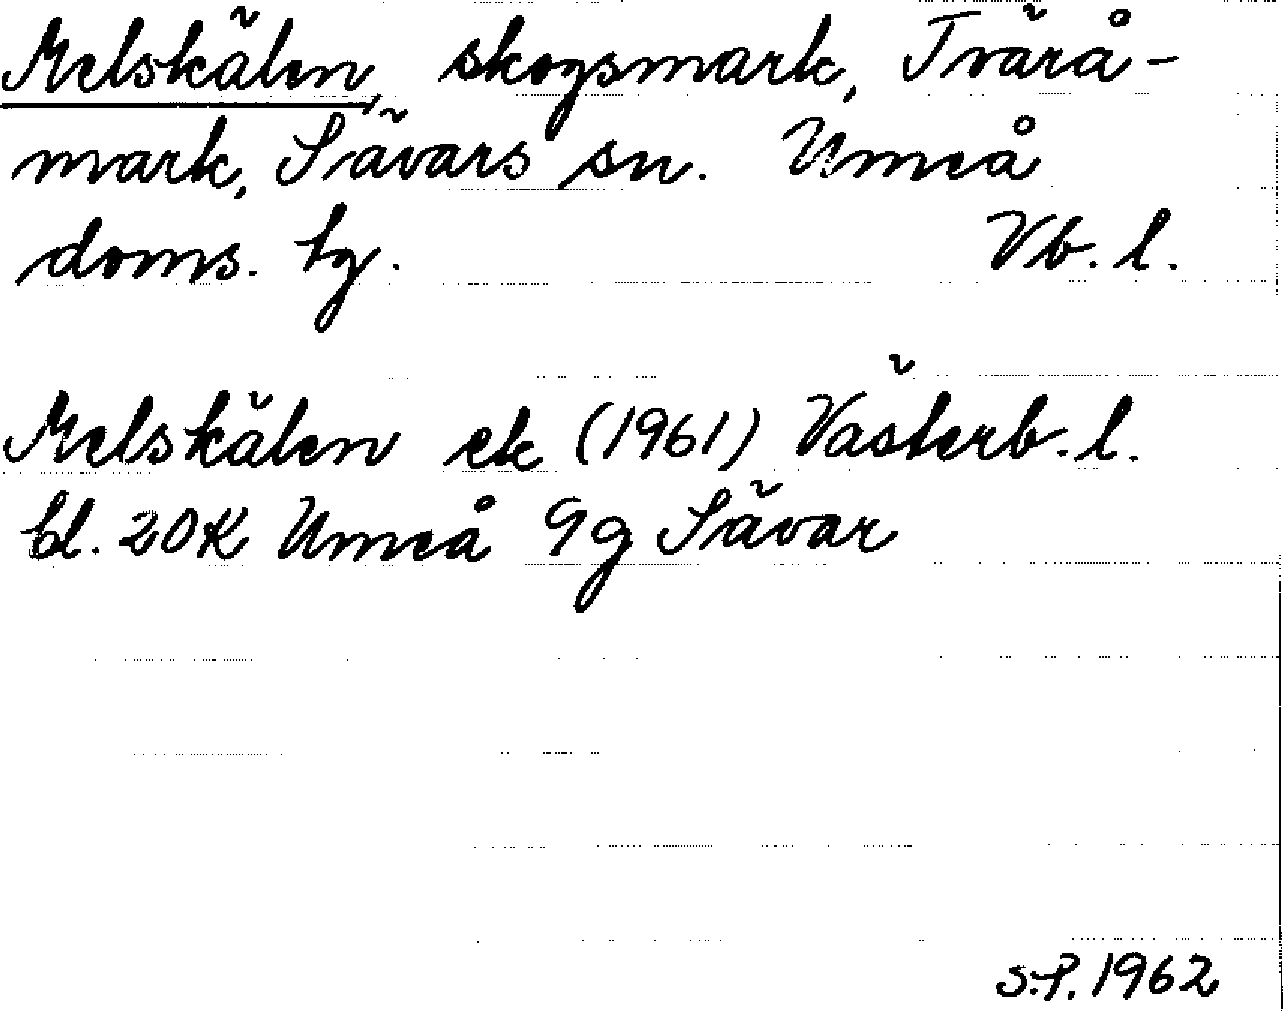 Melskälen, skogsmark, Tvärå-
mark, Sävars sn. Umeå
doms. tg. Vb. l.
Melskälen ek (1961) Västerb. l.
bl. 20K Umeå 9g Sävar
S.P. 1962